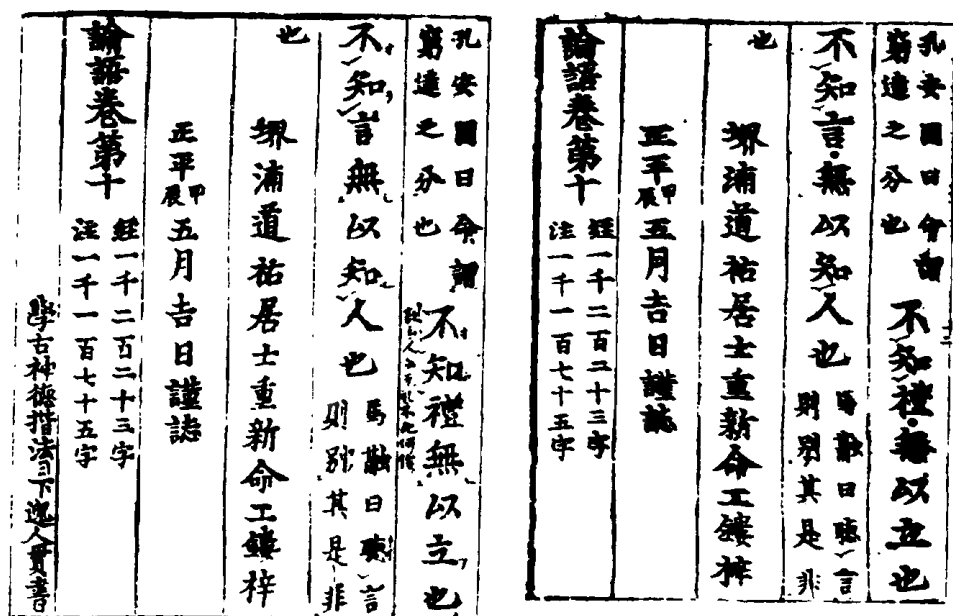 孔安國曰命謂
窮達之分也
不知禮無以立也
不知言無以知人也
馬融曰聴言
則別其是非
也
堺浦道祐居士重新命工鏤梓
正平甲辰五月吉日謹誌
論語卷第十
經一千二百二十三字
注一千一百七十五字
孔安國曰命謂
窮達之分也
不知禮無以立也
不知言無以知人也
馬融曰聴言
則別其是非
也
堺浦道祐居士重新命工鏤梓
正平甲辰五月吉日謹誌
論語卷第十
經一千二百二十三字
注一千一百七十五字
學古神德揩法日下逸人貫書